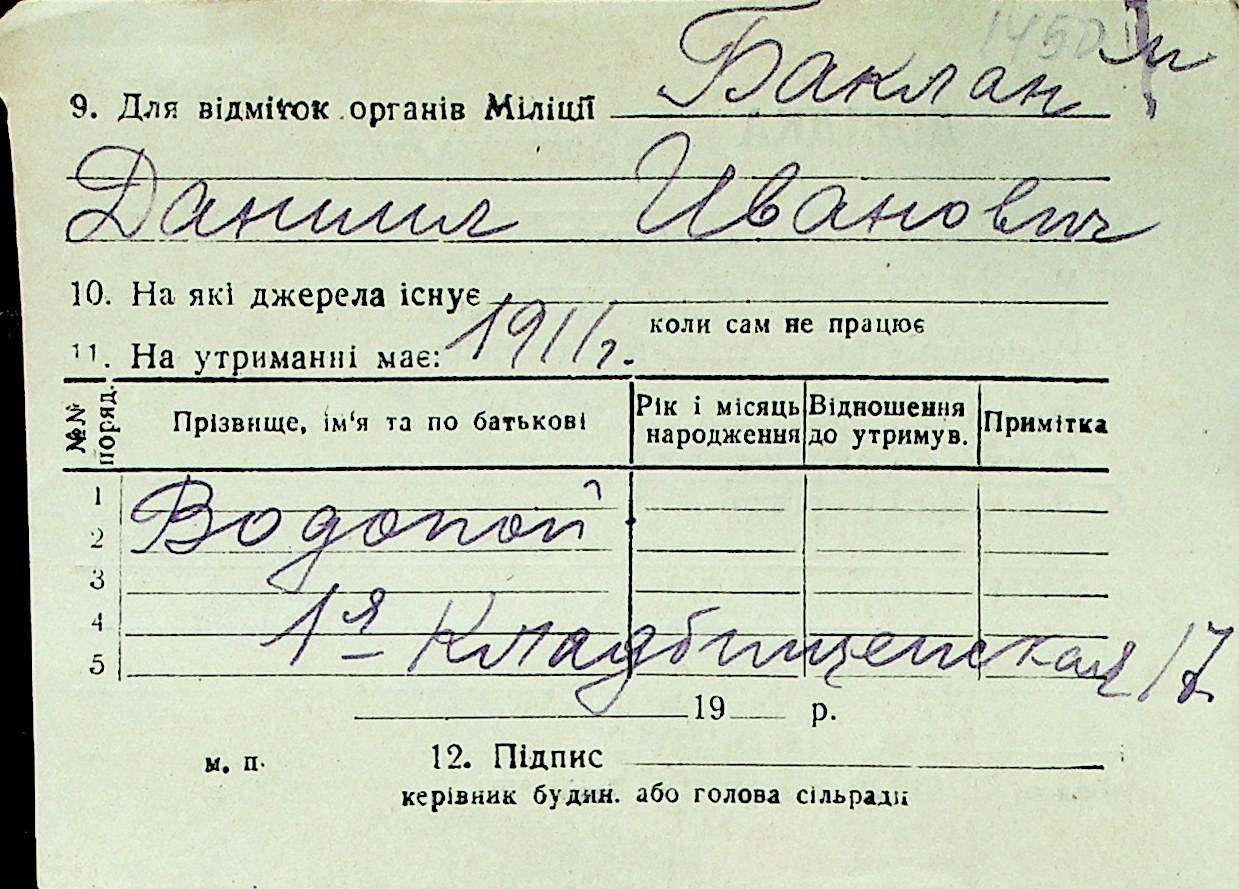 1450
9. Для відміток органів Міліції Баклан
Даниил Иванович
10. На які джерела існує
коли сам не працює
11. На утриманні має: 1911г.
№№ поряд. Прізвище, ім'я та по батькові Рік і місяць народження Відношення до утримув. Примітка
1
2 Водопой
3
4
5 1я Кладбищенская 17
19 р.
м. п. 12. Підпис
керівник будин. або голова сільради